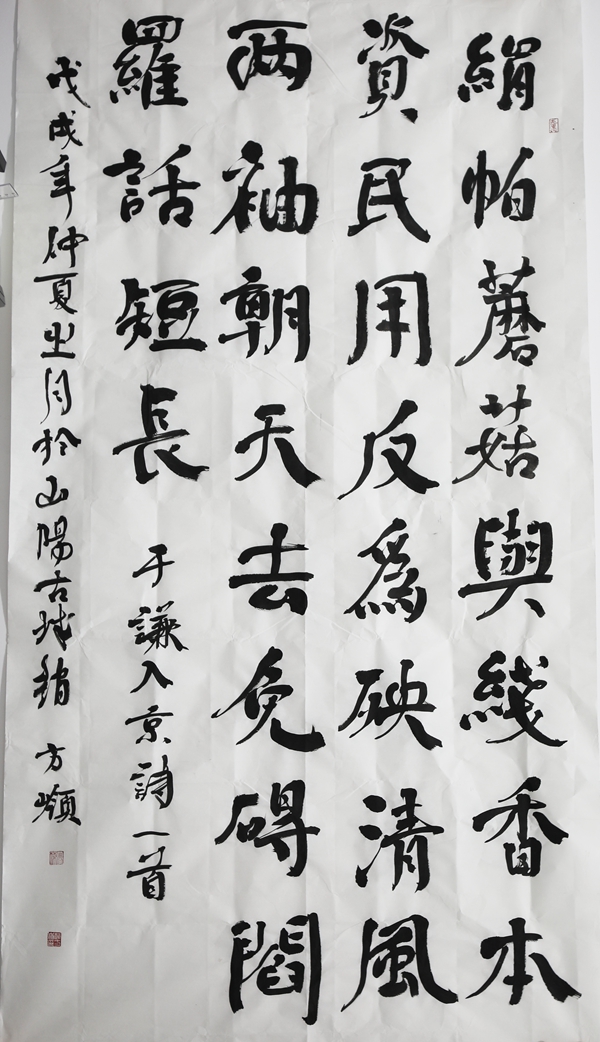 絹帕蘑菇與綫香本
資民用反爲殃清風
兩袖朝天去免碍閻
羅話短長
于謙入京詩一首
戊戌年仲夏之月於山陽古城 方